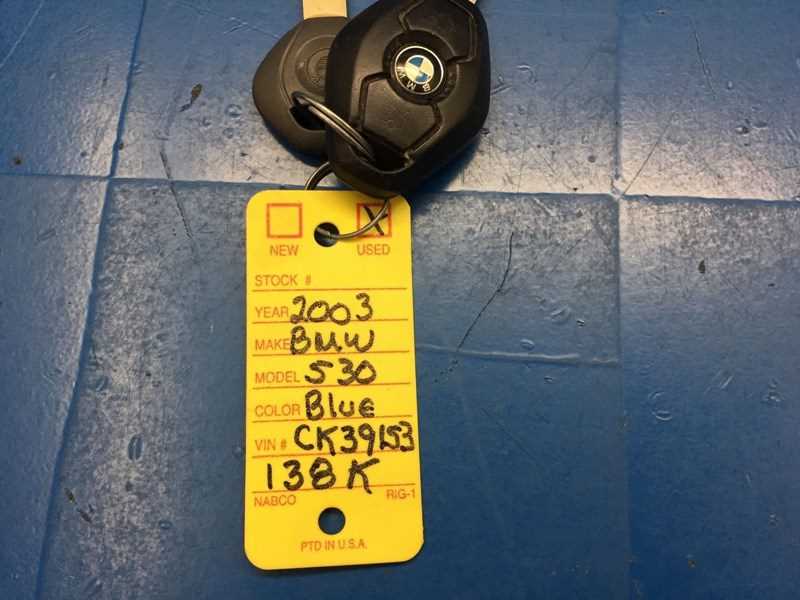 BMW
NEW USED
STOCK #
YEAR 2003
MAKE BMW
MODEL 530
COLOR Blue
VIN # CK39153
138K
NABCO RIG-1
PTD IN U.S.A.